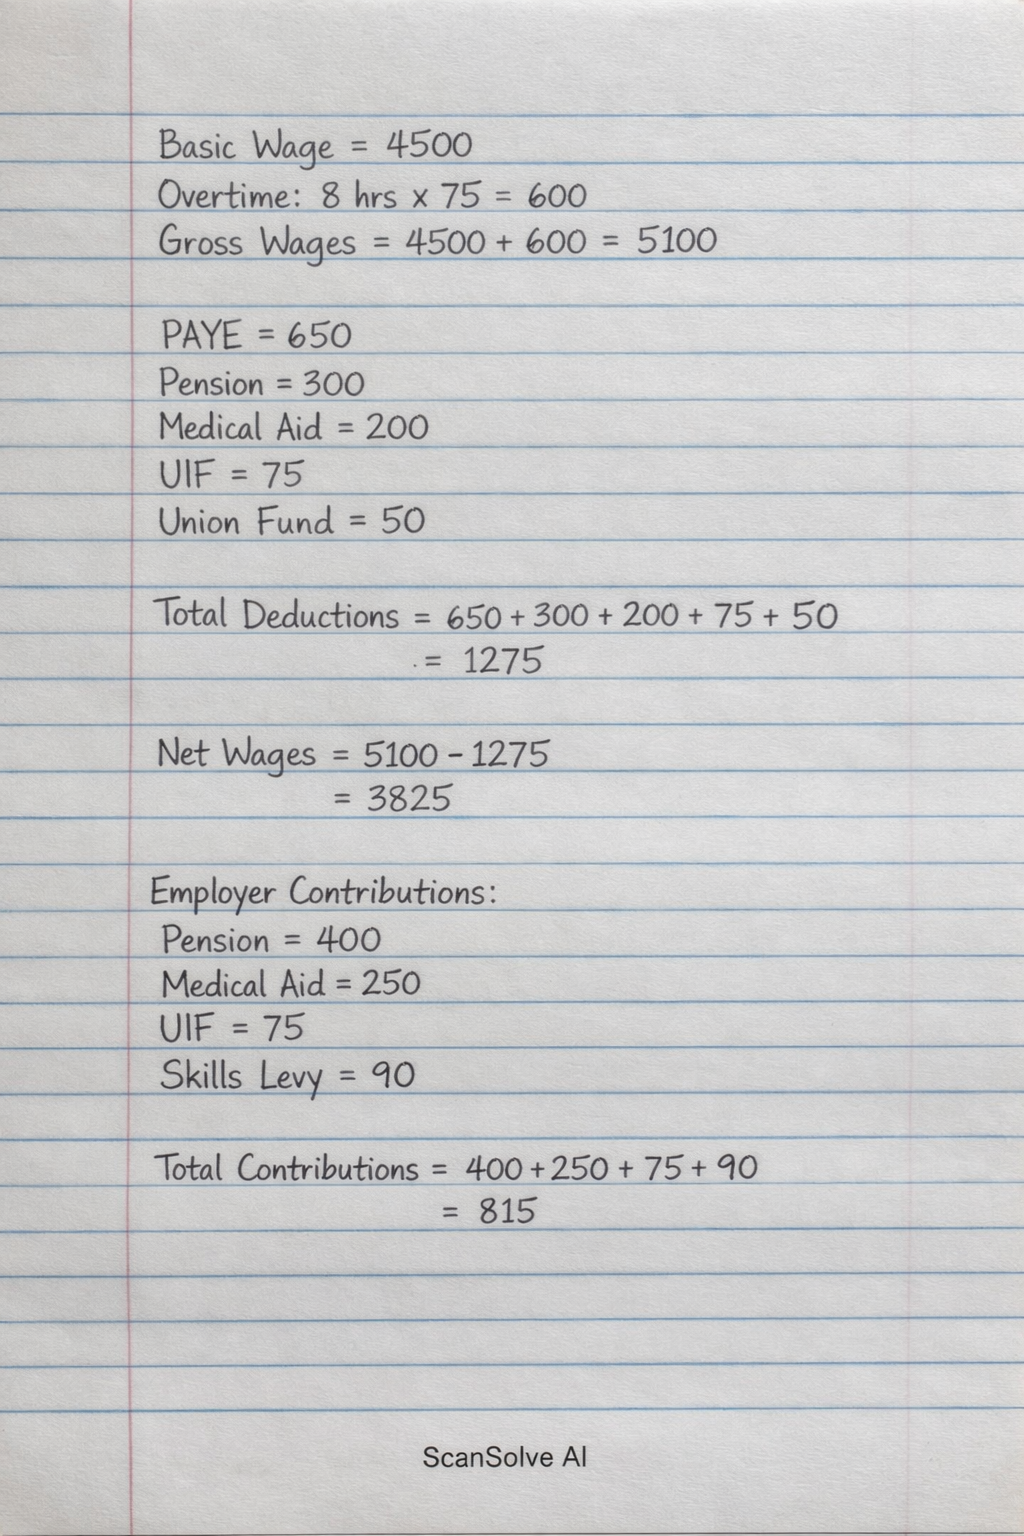 Basic Wage = 4500
Overtime: 8 hrs x 75 = 600
Gross Wages = 4500 + 600 = 5100
PAYE = 650
Pension = 300
Medical Aid = 200
UIF = 75
Union Fund = 50
Total Deductions = 650 + 300 + 200 + 75 + 50
= 1275
Net Wages = 5100 - 1275
= 3825
Employer Contributions:
Pension = 400
Medical Aid = 250
UIF = 75
Skills Levy = 90
Total Contributions = 400 + 250 + 75 + 90
= 815
ScanSolve AI